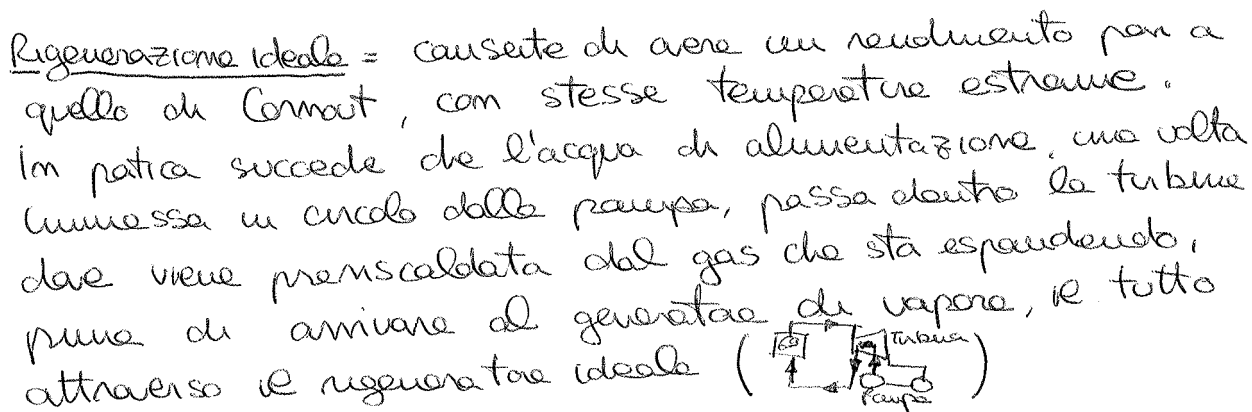 Rigenerazione ideale = consente di avere un rendimento pari a
quello di Carnot, con stesse temperature estreme.
in patica succede che l'acqua di alimentazione, una volta
immessa in circolo dalla pompa, passa dentro la turbina
dove viene preriscaldata dal gas che sta espandendo,
prima di arrivare al generatore di vapore, il tutto
attraverso il rigeneratore ideale (
Turbina
Pompa
)